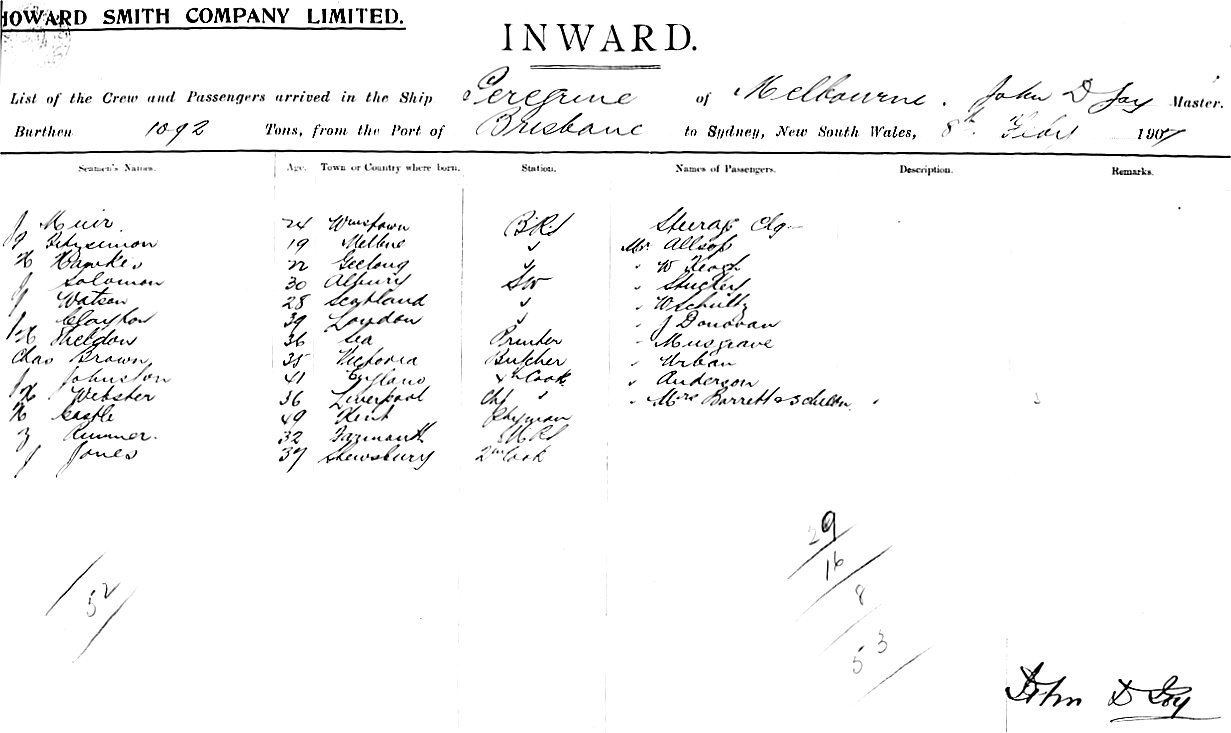 HOWARD SMITH COMPANY LIMITED.
INWARD.
List of the Crew and Passengers arrived in the Ship Peregrine of Melbourne. John D Joy Master.
Burthen 1092 Tons, from the Port of Brisbane to Sydney, New South Wales, 8th Feby 1907
Seamen's Names. Age. Town or Country where born. Station. Names of Passengers. Description. Remarks.
J Muir. 24 BRS
19 Melbne " Mr. Allsop
H Hawkes 22 Geelong " " W Keogh
J Solomon 30 Albury SW " Stuckey
J Watson 28 Scotland " " W Schultz
J Clayton 39 London " " J Donovan
H Sheldon 36 Sea Printer " Musgrave
Chas Brown 35 Victoria Butcher " Urban
J Johnston 41 England 4th Cook " Anderson
H Webster 36 Liverpool Ch " " Mrs Barrett & 3 children
H Castle 49 Kent
32 Yarmouth
J Jones 37 Shewsbury 2nd Cook
29
16
8
52
53
John D Joy